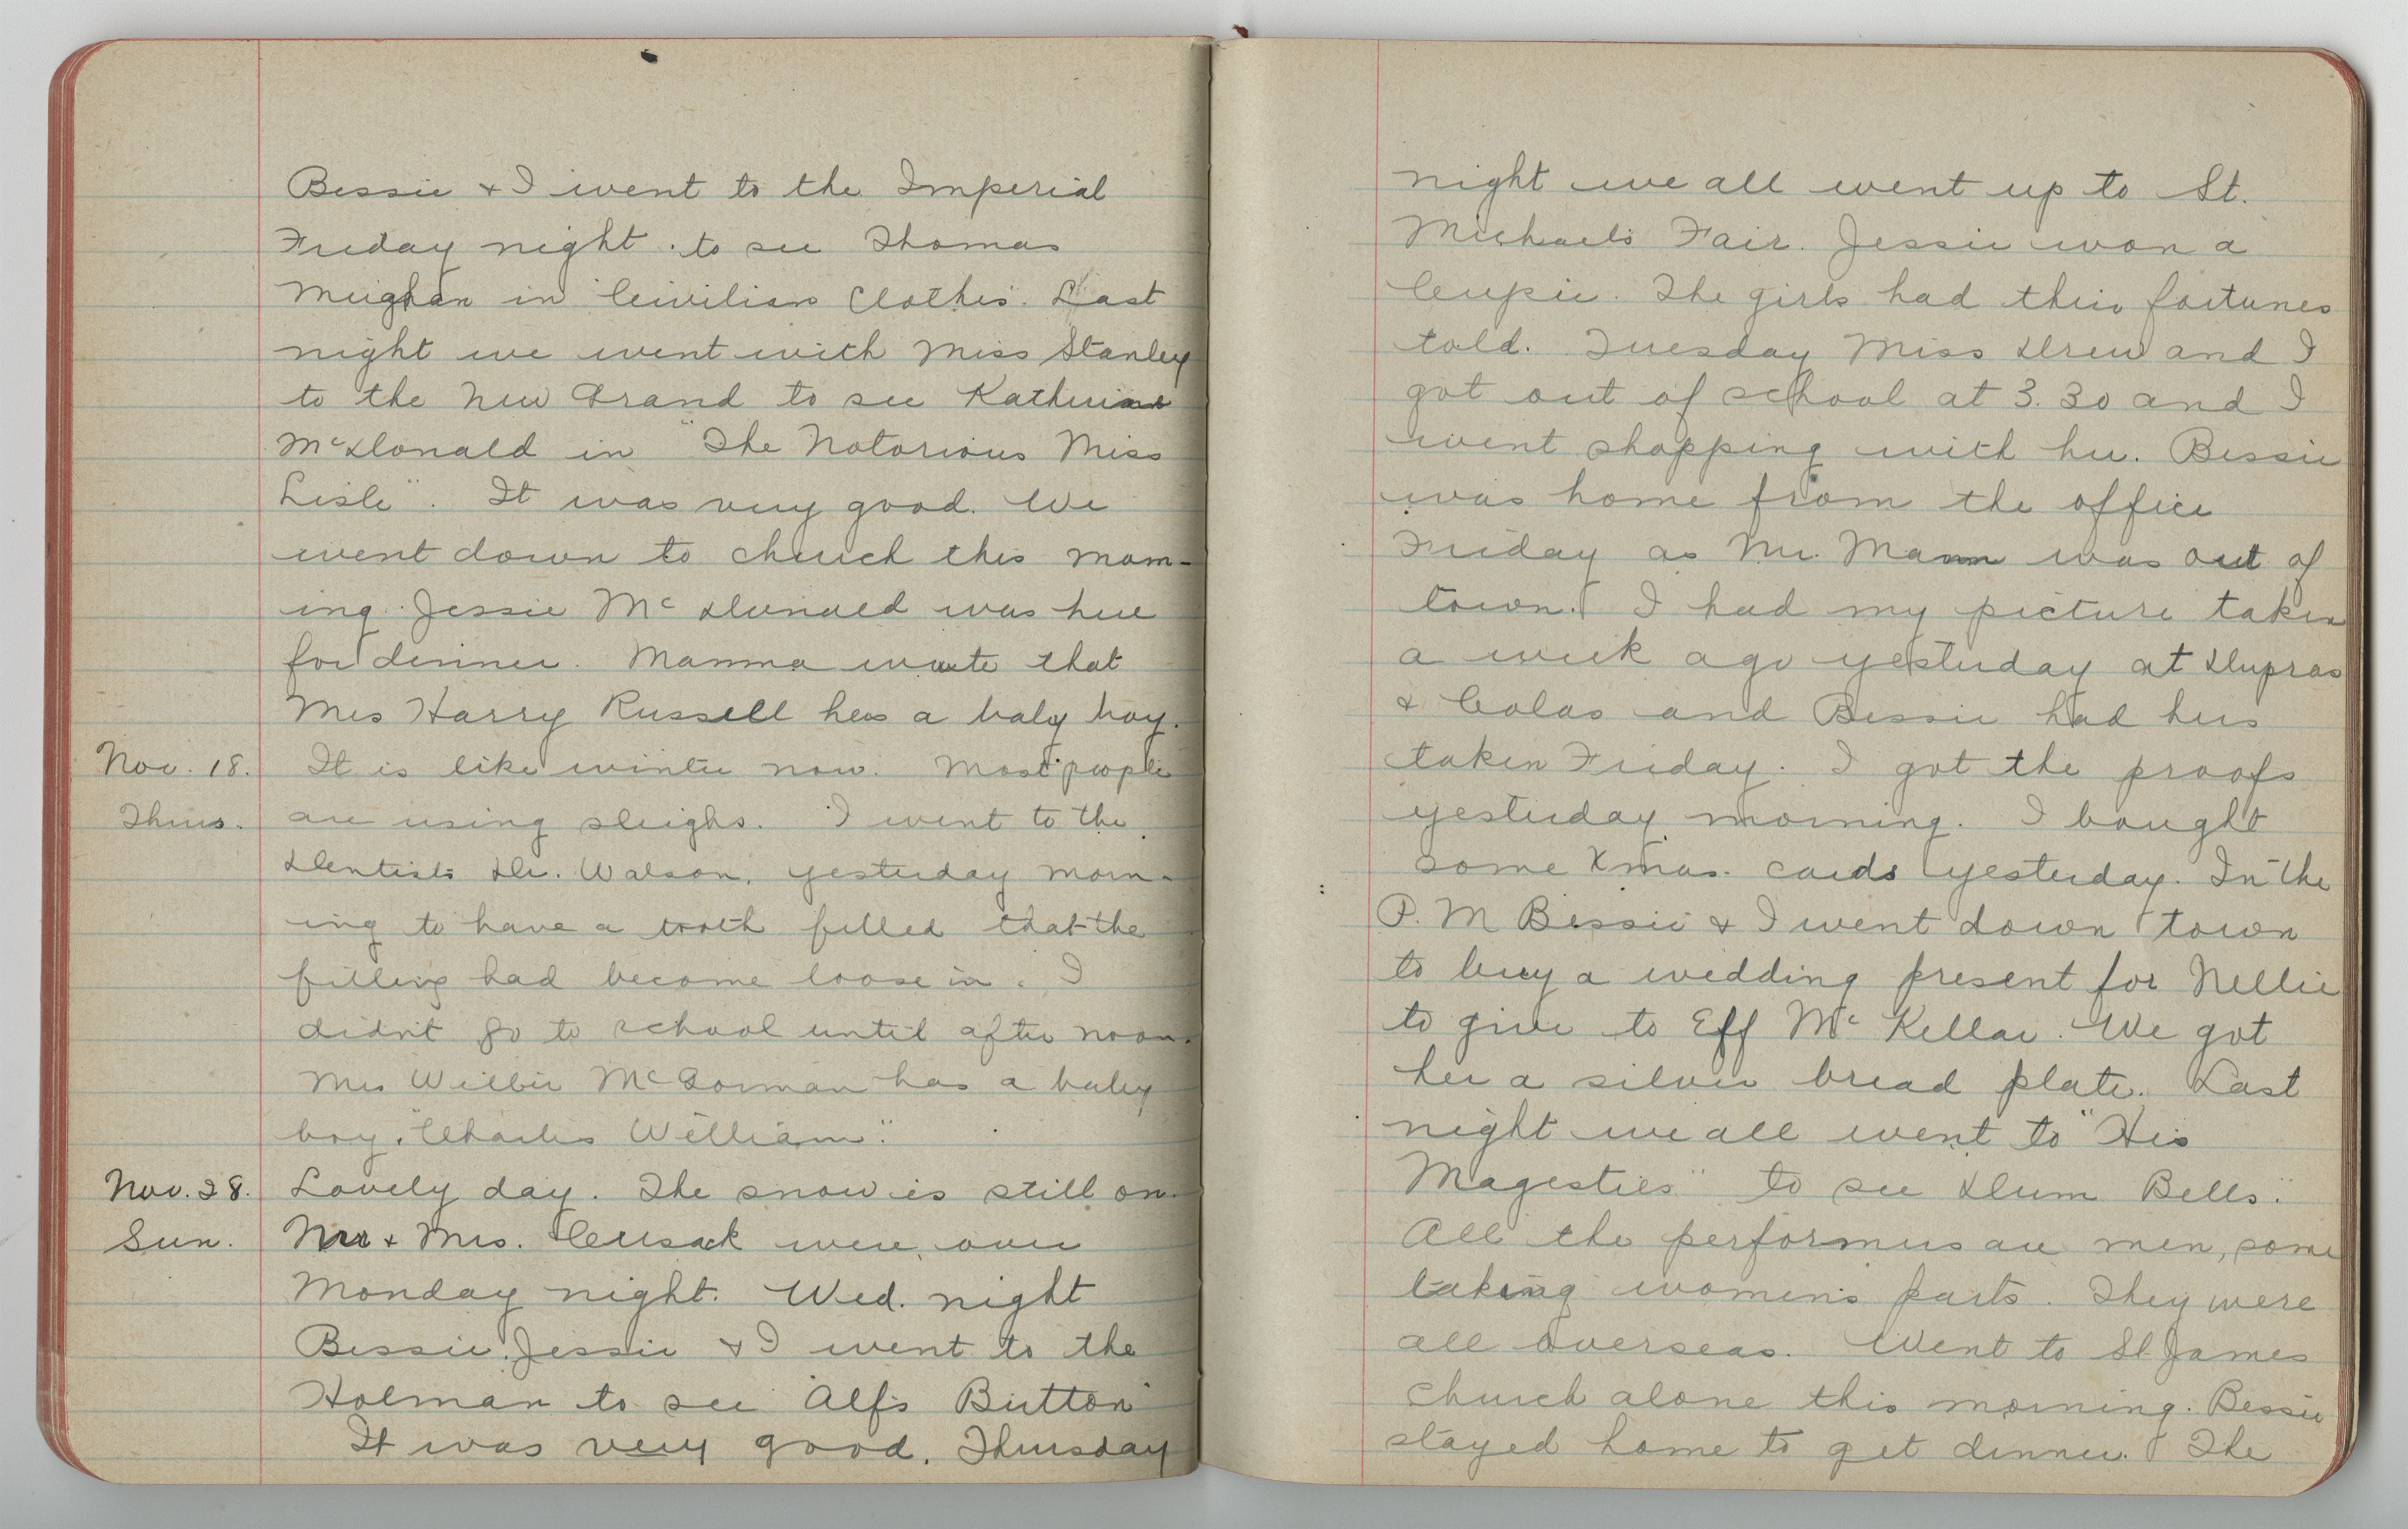 Bessie & I went to the Imperial
Friday night to see Thomas
Meighan in Civilian Clothes. Last
night we went with Miss Stanley
to the New Grand to see Katherine
McDonald in "The Notorious Miss
Lisle". It was very good. We
went down to church this morn-
ing. Jessie McDonald was here
for dinner. Mamma wrote that
Mrs Harry Russell has a baby boy.
Nov. 18. It is like winter now. Most people
Thurs. are using sleighs. I went to the
Dentists Dr. Watson, yesterday morn-
ing to have a tooth filled that the
filling had become loose in. I
didn't go to school until after noon.
Mrs Wilbir McGorman has a baby
boy, "Charles William".
Nov. 28. Lovely day. The snow is still on.
Sun. Mr & Mrs. Cusack were over
Monday night. Wed. night
Bessie, Jessie & I went to the
Holman to see "Alf's Button"
It was very good. Thursday
night we all went up to St.
Michael's Fair. Jessie won a
Cupie. The girls had their fortunes
told. Tuesday Miss Drew and I
got out of school at 3.30 and I
went shopping with her. Bessie
was home from the office
Friday as Mr. Mann was out of
town. I had my picture taken
a week ago yesterday at Dupras
& Colas and Bessie had hers
taken Friday. I got the proofs
yesterday morning. I bought
some Xmas. cards yesterday. In the
P. M Bessie & I went down town
to buy a wedding present for Nellie
to give to Eff McKellar. We got
her a silver bread plate. Last
night we all went to "His
Magesties" to see Dum Bells."
All the performers are men, some
taking women's parts. They were
all overseas. Went to St. James
Church alone this morning. Bessie
stayed home to get dinner. The